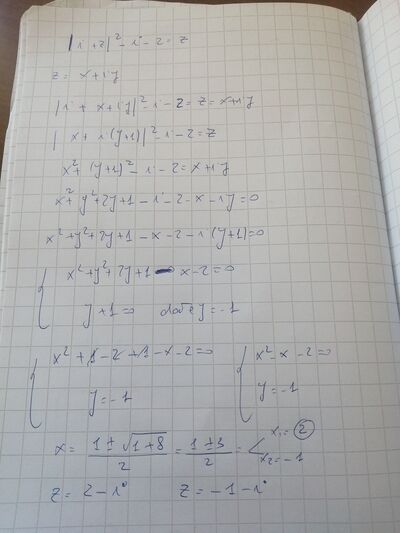 |i+z|² - i - 2 = z
z = x+iy
|i + x+iy|² - i - 2 = z = x+iy
| x+i(y+1)|² - i - 2 = z
x² + (y+1)² - i - 2 = x+iy
x² + y² + 2y + 1 - i - 2 - x - iy = 0
x² + y² + 2y + 1 - x - 2 - i(y+1) = 0
{ x² + y² + 2y + 1 - x - 2 = 0
y + 1 = 0 da te y = -1
{ x² + 1 - 2 + 1 - x - 2 = 0 { x² - x - 2 = 0
y = -1 y = -1
x = 1 ± √1+8 / 2 = 1 ± 3 / 2 = < x₁ = 2 x₂ = -1
z = 2 - i z = -1 - i